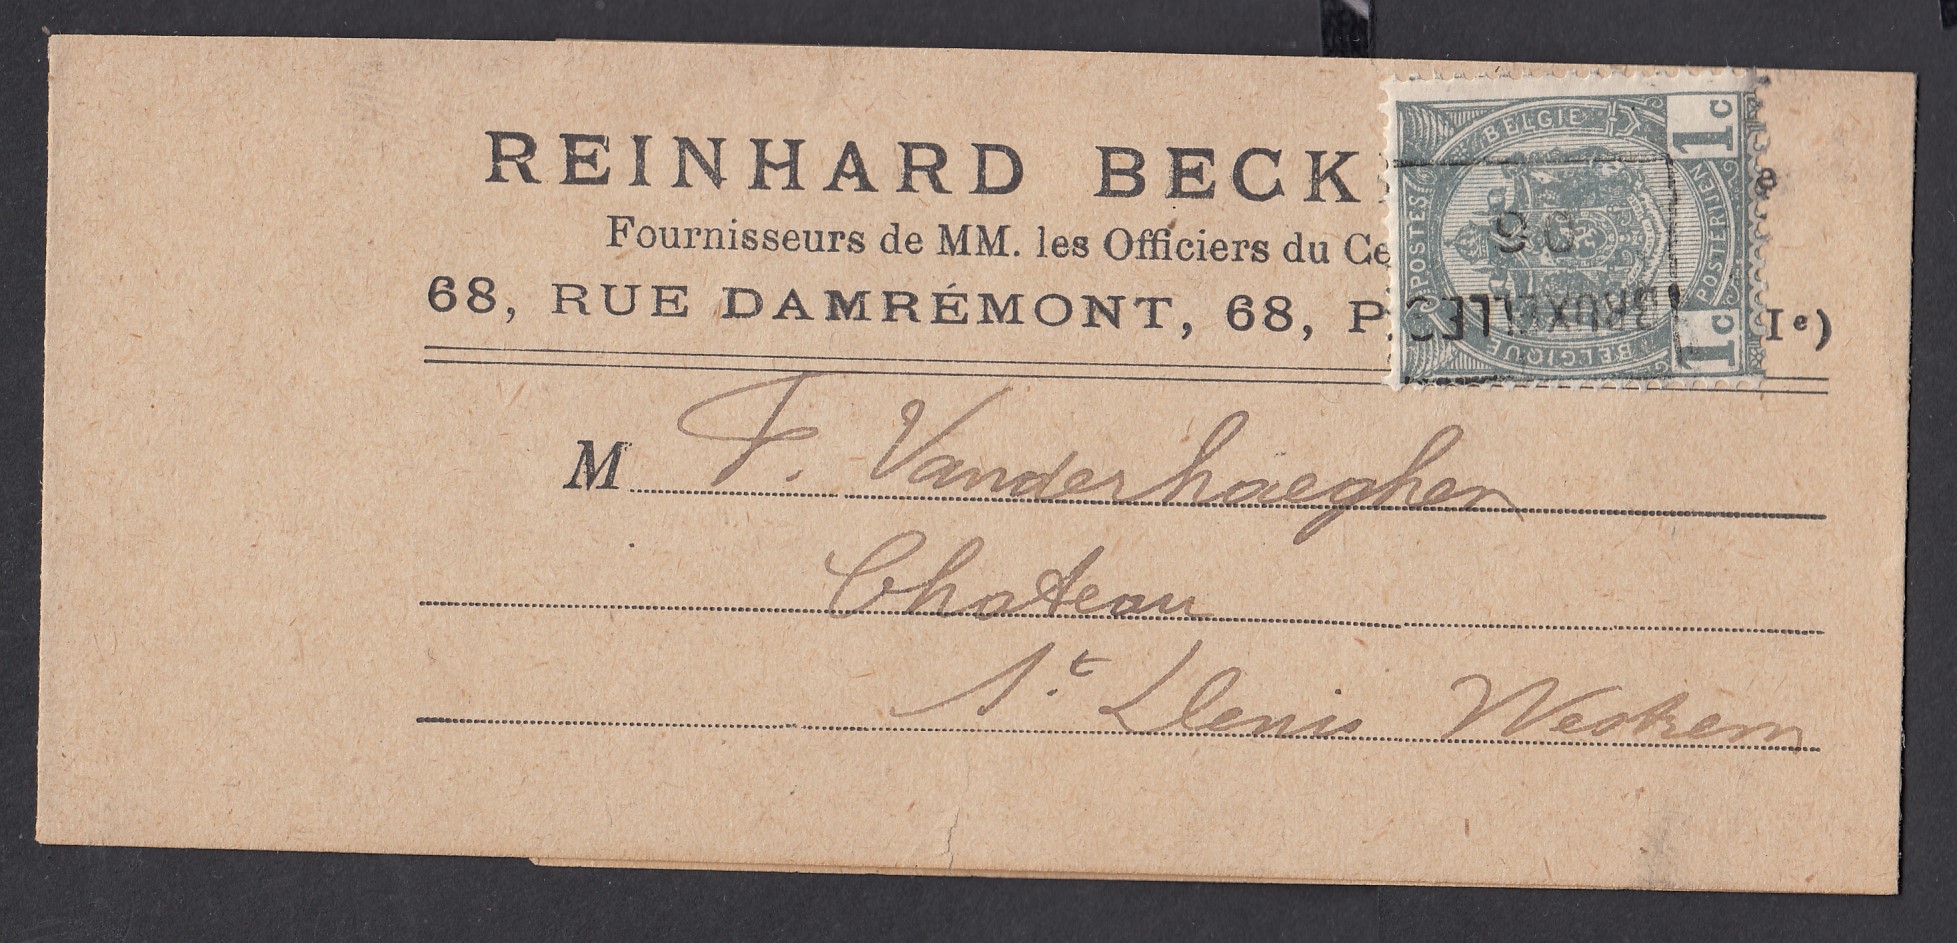 REINHARD BECK
Fournisseurs de MM. les Officiers du Ce
68, RUE DAMRÉMONT, 68, P Ie)
1c BELGIE POSTERIJEN
POSTES BELGIQUE 1c
06
BRUXELLES
M F. Vanderhaeghen
Chateau
St Denis Westrem